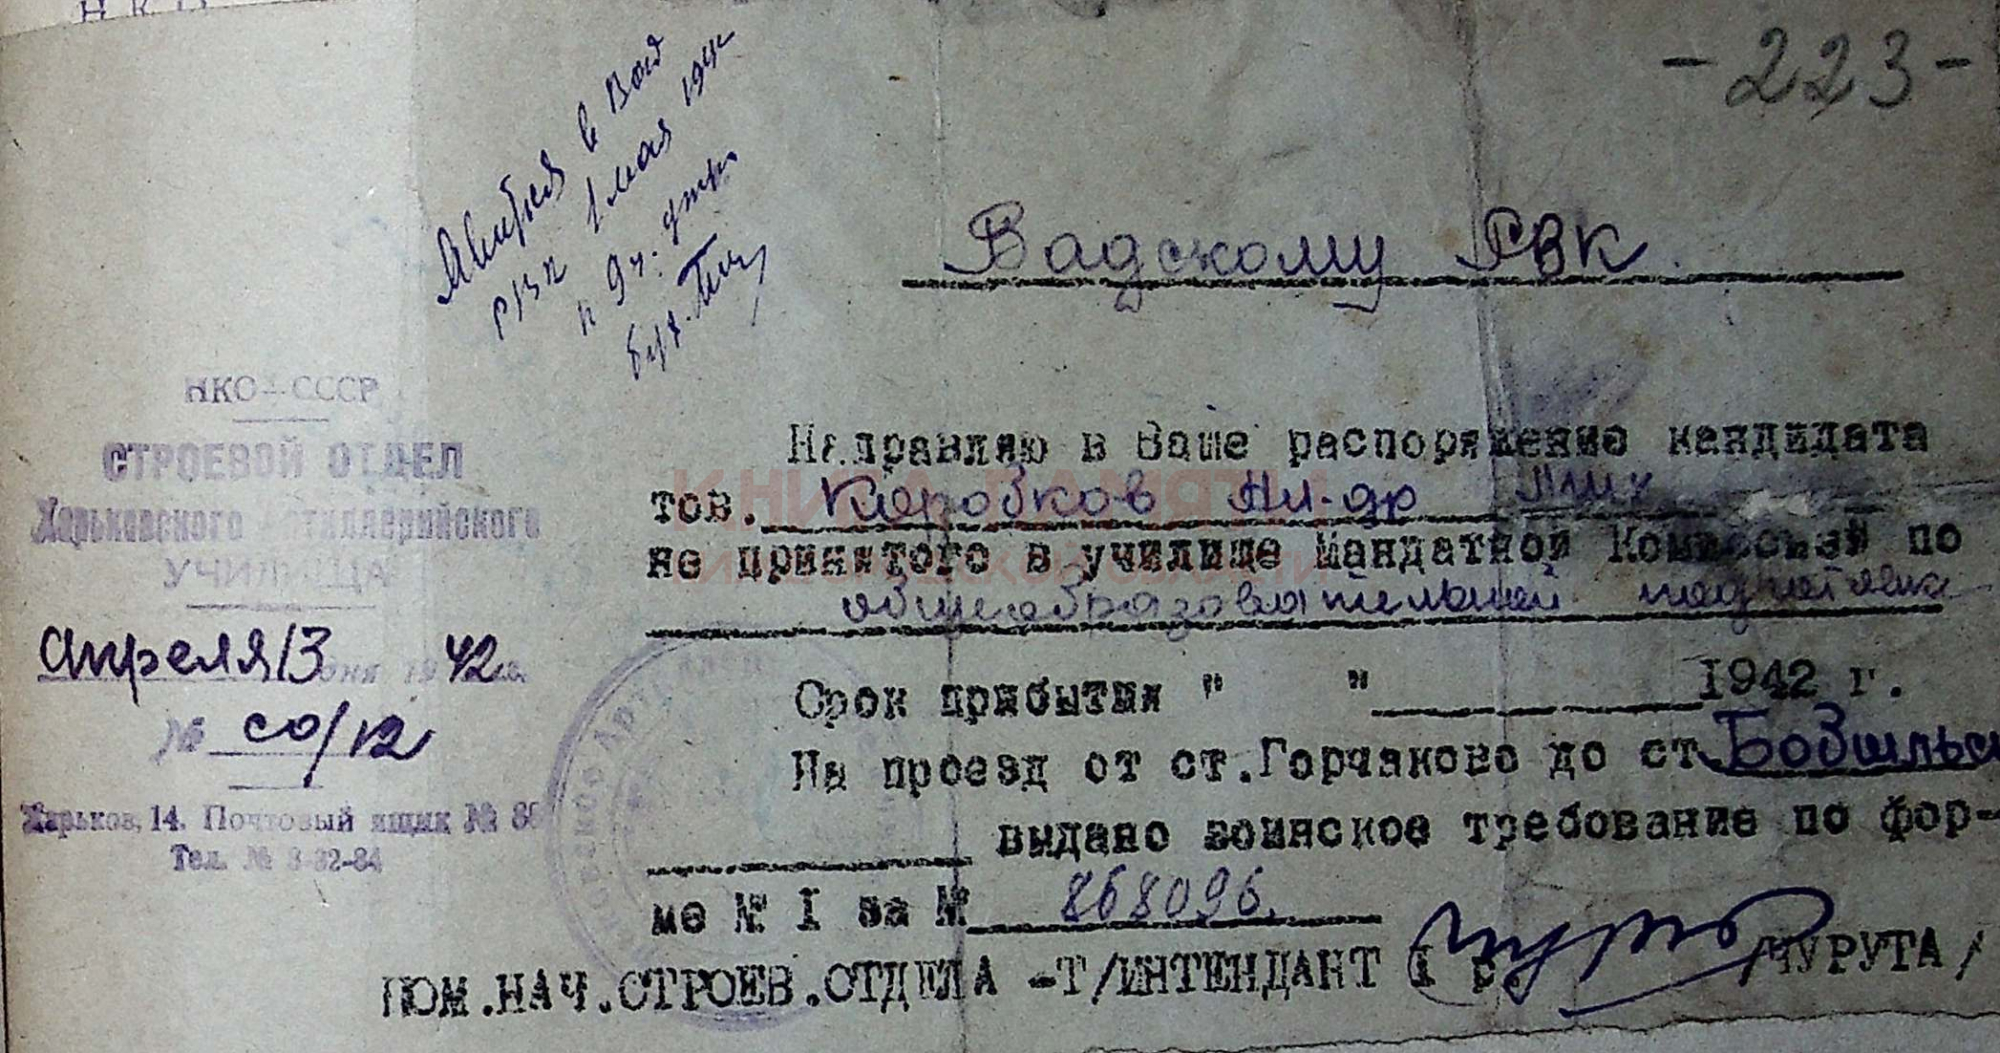 -223-
в Вад
1 мая
к 9 ч.
Вадскому РВК
НКО-СССР
СТРОЕВОЙ ОТДЕЛ
Харьковского Артиллерийского
УЧИЛИЩА
Апреля 13 1942 г.
№ со/12
Харьков, 14. Почтовый ящик №
Тел. №
Направляю в Ваше распоряжение кандидата
тов. Коробков Ал-др Мих
КНИГА ПАМЯТИ
не принятого в училище Мандатной Комиссией по
общеобразовательной подготовке
Срок прибытия " " 1942 г.
На проезд от ст.Горчаково до ст.
выдано воинское требование по фор-
ме № I за № 868096.
ПОМ.НАЧ.СТРОЕВ.ОТДЕЛА -Т/ИНТЕНДАНТ I р. /ЧУРУТА/